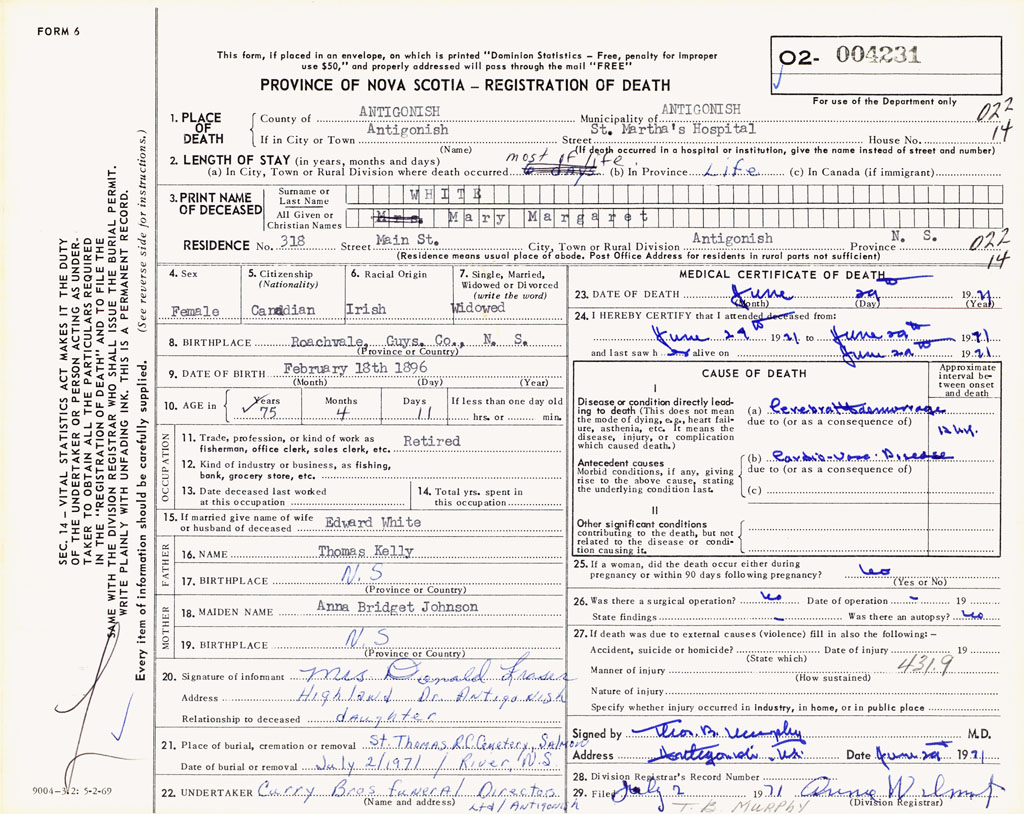 FORM 6
This form, if placed in an envelope, on which is printed "Dominion Statistics – Free, penalty for improper
use $50," and properly addressed will pass through the mail "FREE"
O2- 004231
PROVINCE OF NOVA SCOTIA – REGISTRATION OF DEATH
For use of the Department only
022
14
1. PLACE OF DEATH
County of ANTIGONISH Municipality of ANTIGONISH
If in City or Town Antigonish Street St. Martha's Hospital House No.
(Name) (If death occurred in a hospital or institution, give the name instead of street and number)
2. LENGTH OF STAY (in years, months and days) most of life
(a) In City, Town or Rural Division where death occurred 6 days (b) In Province Life (c) In Canada (if immigrant)
3. PRINT NAME OF DECEASED
Surname or Last Name WHITE
All Given or Christian Names Mrs. Mary Margaret
RESIDENCE No. 318 Street Main St. City, Town or Rural Division Antigonish Province N. S.
(Residence means usual place of abode. Post Office Address for residents in rural parts not sufficient)
022
14
4. Sex
Female
5. Citizenship
(Nationality)
Canadian
6. Racial Origin
Irish
7. Single, Married,
Widowed or Divorced
(write the word)
Widowed
8. BIRTHPLACE Roachvale, Guys. Co., N. S.
(Province or Country)
9. DATE OF BIRTH February 18th 1896
(Month) (Day) (Year)
10. AGE in Years Months Days If less than one day old
75 4 11 hrs. or min.
OCCUPATION
11. Trade, profession, or kind of work as Retired
fisherman, office clerk, sales clerk, etc.
12. Kind of industry or business, as fishing,
bank, grocery store, etc.
13. Date deceased last worked
at this occupation
14. Total yrs. spent in
this occupation
15. If married give name of wife
or husband of deceased Edward White
FATHER
16. NAME Thomas Kelly
17. BIRTHPLACE N.S
(Province or Country)
MOTHER
18. MAIDEN NAME Anna Bridget Johnson
19. BIRTHPLACE N.S
(Province or Country)
20. Signature of informant Mrs Donald Fraser
Address Highland Dr. Antigonish
Relationship to deceased daughter
21. Place of burial, cremation or removal St. Thomas R.C. Cemetery, Salmon
Date of burial or removal July 2/1971 / River, N.S
22. UNDERTAKER Curry Bros Funeral Directors
(Name and address) Ltd / Antigonish
MEDICAL CERTIFICATE OF DEATH
23. DATE OF DEATH June 29th 1971
(Month) (Day) (Year)
24. I HEREBY CERTIFY that I attended deceased from:
June 29th 1971 to June 29th 1971
and last saw h alive on June 29th 1971
CAUSE OF DEATH
Approximate
interval be-
tween onset
and death
I
Disease or condition directly lead-
ing to death (This does not mean
the mode of dying, e.g., heart fail-
ure, asthenia, etc. It means the
disease, injury, or complication
which caused death.)
(a) Cerebral Haemorrage
due to (or as a consequence of)
12 hrs.
Antecedent causes
Morbid conditions, if any, giving
rise to the above cause, stating
the underlying condition last.
(b) Cardio-Vasc. Disease
due to (or as a consequence of)
(c)
II
Other significant conditions
contributing to the death, but not
related to the disease or condi-
tion causing it.
25. If a woman, did the death occur either during
pregnancy or within 90 days following pregnancy? No
(Yes or No)
26. Was there a surgical operation? No Date of operation – 19
State findings – Was there an autopsy? No
27. If death was due to external causes (violence) fill in also the following: –
Accident, suicide or homicide? Date of injury 19
(State which)
Manner of injury 431.9
(How sustained)
Nature of injury
Specify whether injury occurred in industry, in home, or in public place
Signed by Thos. B. Murphy M.D.
Address Antigonish, N.S. Date June 29th 1971
28. Division Registrar's Record Number
29. Filed July 2 1971 Anna Wilmot
T. B. MURPHY (Division Registrar)
SEC. 14 – VITAL STATISTICS ACT MAKES IT THE DUTY
OF THE UNDERTAKER OR PERSON ACTING AS UNDER-
TAKER TO OBTAIN ALL THE PARTICULARS REQUIRED
IN THE "REGISTRATION OF DEATH" AND TO FILE THE
SAME WITH THE DIVISION REGISTRAR WHO SHALL ISSUE THE BURIAL PERMIT.
WRITE PLAINLY WITH UNFADING INK. THIS IS A PERMANENT RECORD.
Every item of information should be carefully supplied. (See reverse side for instructions.)
9004-3.2: 5-2-69